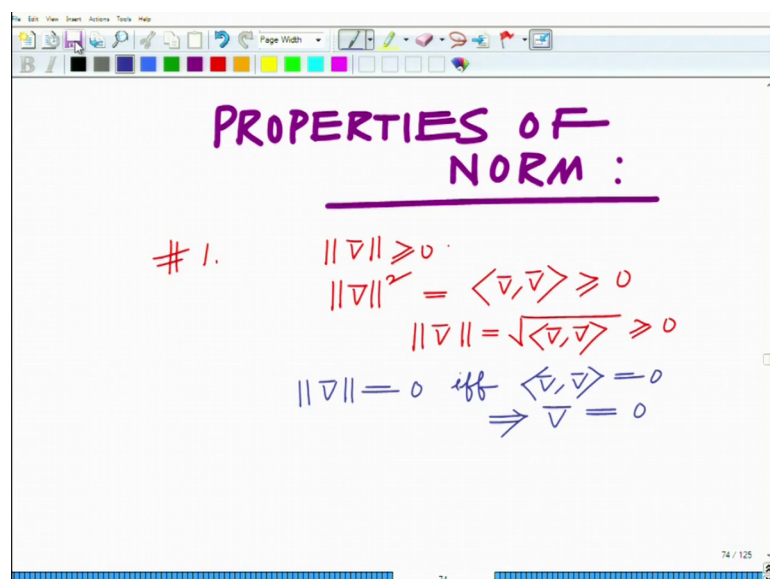 File Edit View Insert Actions Tools Help
Page Width
B I
PROPERTIES OF
NORM :
# 1. ||v̅|| ⩾ 0 .
||v̅||² = ⟨v̅, v̅⟩ ⩾ 0
||v̅|| = √⟨v̅, v̅⟩ ⩾ 0
||v̅|| = 0 iff ⟨v̅, v̅⟩ = 0
⇒ v̅ = 0
74 / 125